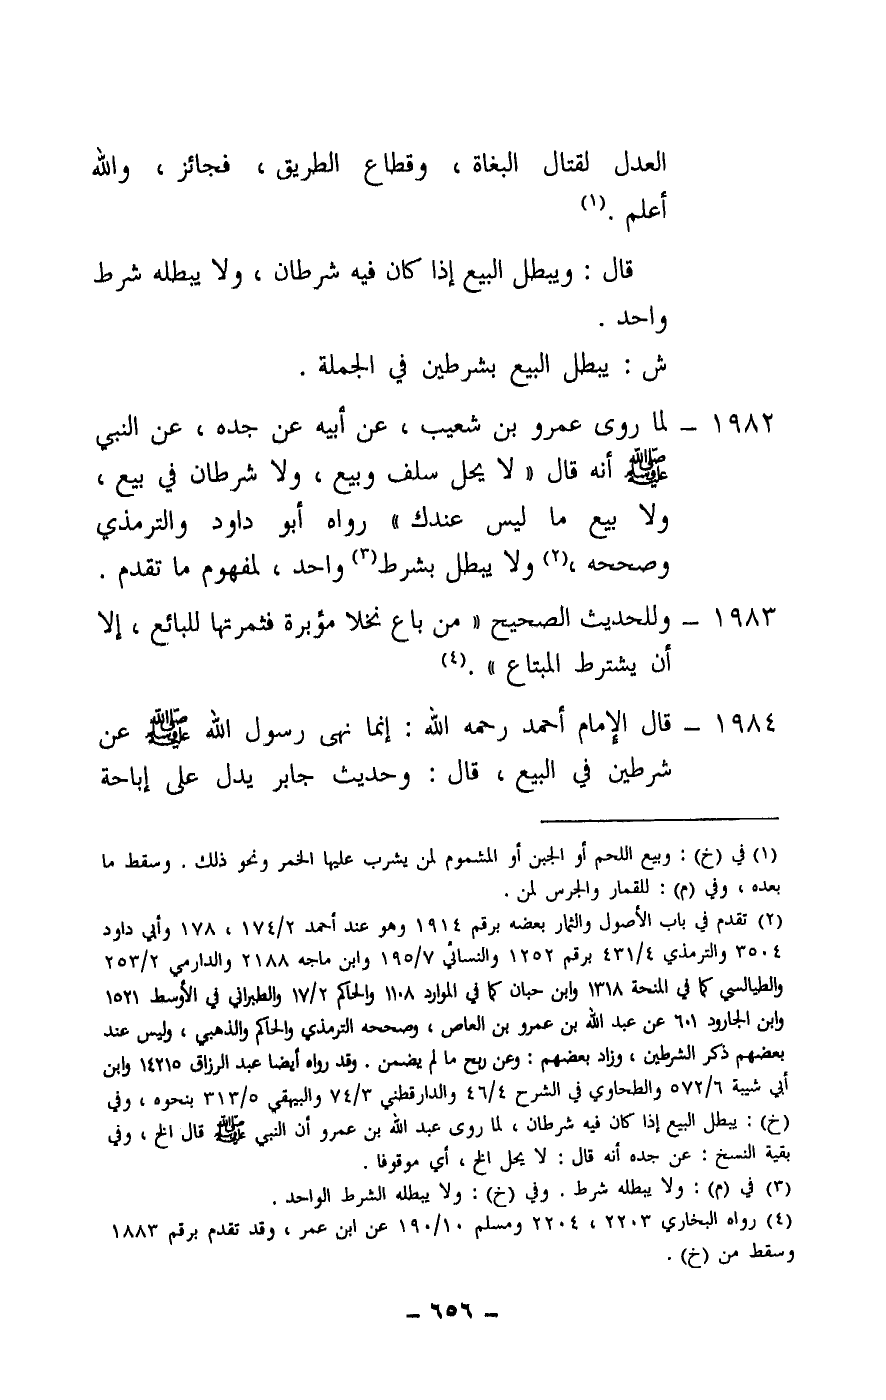 العدل لقتال البغاة ، وقطاع الطريق ، فجائز ، والله
أعلم .(١)
قال : ويبطل البيع إذا كان فيه شرطان ، ولا يبطله شرط
واحد .
ش : يبطل البيع بشرطين في الجملة .
١٩٨٢ – لما روى عمرو بن شعيب ، عن أبيه عن جده ، عن النبي
ﷺ أنه قال « لا يحل سلف وبيع ، ولا شرطان في بيع ،
ولا بيع ما ليس عندك » رواه أبو داود والترمذي
وصححه ،(٢) ولا يبطل بشرط(٣) واحد ، لمفهوم ما تقدم .
١٩٨٣ – وللحديث الصحيح « من باع نخلا مؤبرة فثمرتها للبائع ، إلا
أن يشترط المبتاع » .(٤)
١٩٨٤ – قال الإمام أحمد رحمه الله : إنما نهى رسول الله ﷺ عن
شرطين في البيع ، قال : وحديث جابر يدل على إباحة
(١) في (خ) : وبيع اللحم أو الجبن أو المشموم لمن يشرب عليها الخمر ونحو ذلك . وسقط ما
بعده ، وفي (م) : للقمار والجرس لمن .
(٢) تقدم في باب الأصول والثمار بعضه برقم ١٩١٤ وهو عند أحمد ١٧٤/٢ ، ١٧٨ وأبي داود
٣٥٠٤ والترمذي ٤٣١/٤ برقم ١٢٥٢ والنسائي ١٩٥/٧ وابن ماجه ٢١٨٨ والدارمي ٢٥٣/٢
والطيالسي كما في المنحة ١٣١٨ وابن حبان كما في الموارد ١١٠٨ والحاكم ١٧/٢ والطبراني في الأوسط ١٥٢١
وابن الجارود ٦٠١ عن عبد الله بن عمرو بن العاص ، وصححه الترمذي والحاكم والذهبي ، وليس عند
بعضهم ذكر الشرطين ، وزاد بعضهم : وعن ربح ما لم يضمن . وقد رواه أيضا عبد الرزاق ١٤٢١٥ وابن
أبي شيبة ٥٧٢/٦ والطحاوي في الشرح ٤٦/٤ والدارقطني ٧٤/٣ والبيهقي ٣١٣/٥ بنحوه ، وفي
(خ) : يبطل البيع إذا كان فيه شرطان ، لما روى عبد الله بن عمرو أن النبي ﷺ قال الخ ، وفي
بقية النسخ : عن جده أنه قال : لا يحل الخ ، أي موقوفا .
(٣) في (م) : ولا يبطله شرط . وفي (خ) : ولا يبطله الشرط الواحد .
(٤) رواه البخاري ٢٢٠٣ ، ٢٢٠٤ ومسلم ١٩٠/١٠ عن ابن عمر ، وقد تقدم برقم ١٨٨٣
وسقط من (خ) .
– ٦٥٦ –